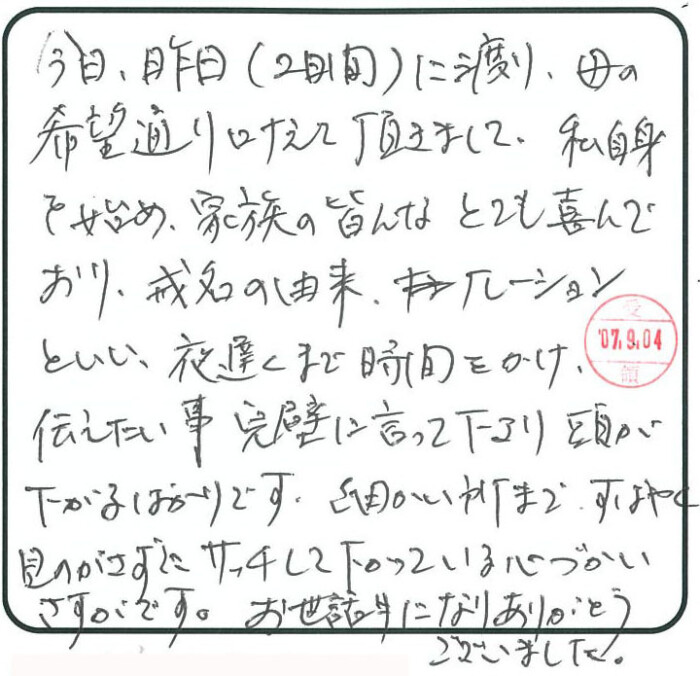 今日、昨日(2日間)に渡り、母の
希望通りにかなえて頂きまして、私自身
を始め、家族の皆んなとても喜んで
おり、戒名の由来、ナレーション
といい、夜遅くまで時間をかけ、
伝えたい事完璧に言って下さり頭が
下がるばかりです。細かい所まですばやく
見のがさずにサッチして下さっている心づかい
さすがです。お世話になりありがとう
ございました。
受
'07.9.04
領